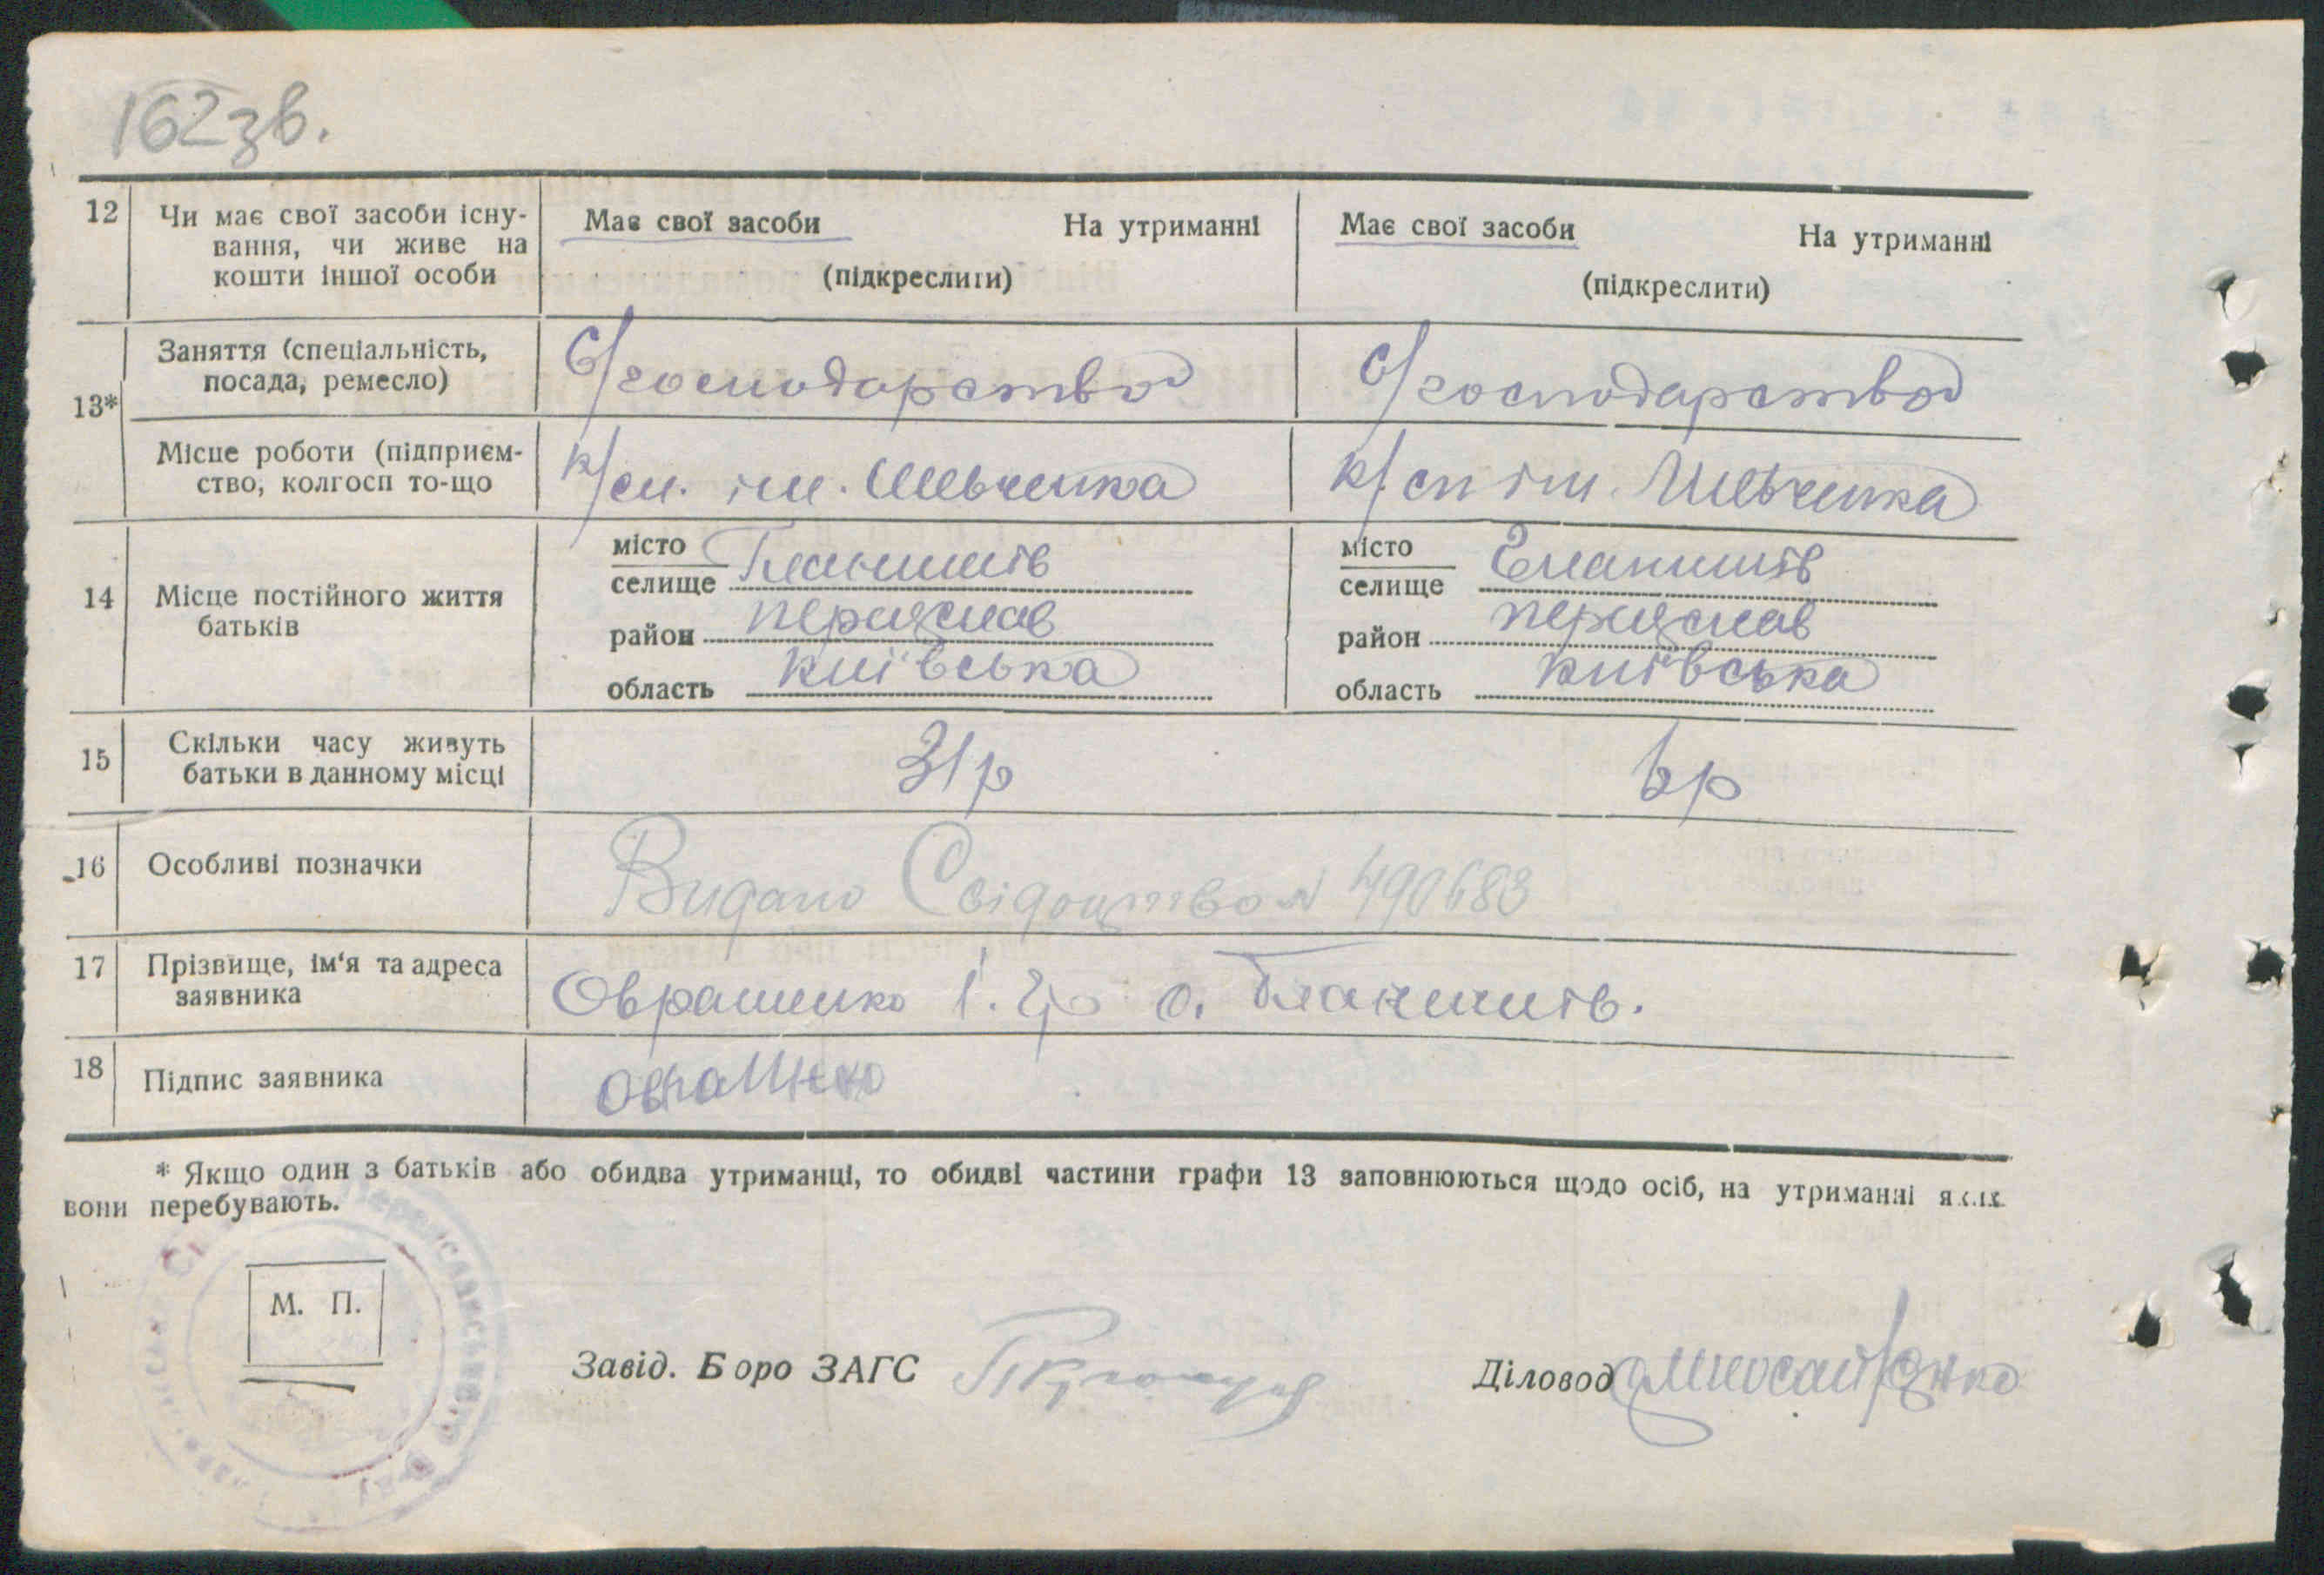 162зв.
12 Чи має свої засоби існу-
вання, чи живе на
кошти іншої особи
Має свої засоби На утриманні
(підкреслити)
Має свої засоби На утриманні
(підкреслити)
13*
Заняття (спеціальність,
посада, ремесло)
С/господарство
С/господарство
Місце роботи (підприєм-
ство, колгосп то-що
к/сп. ім. Шевченка
к/сп ім. Шевченка
14 Місце постійного життя
батьків
місто
селище Гланишів
район переяслав
область київська
місто
селище Гланишів
район переяслав
область київська
15 Скільки часу живуть
батьки в данному місці
31р
6р
16 Особливі позначки
Видано Свідоцтво № 490683
17 Прізвище, ім'я та адреса
заявника
Оврашенко І. с. Гланишів.
18 Підпис заявника
* Якщо один з батьків або обидва утриманці, то обидві частини графи 13 заповнюються щодо осіб, на утриманні яких
вони перебувають.
М. П.
Завід. Бюро ЗАГС
Діловод